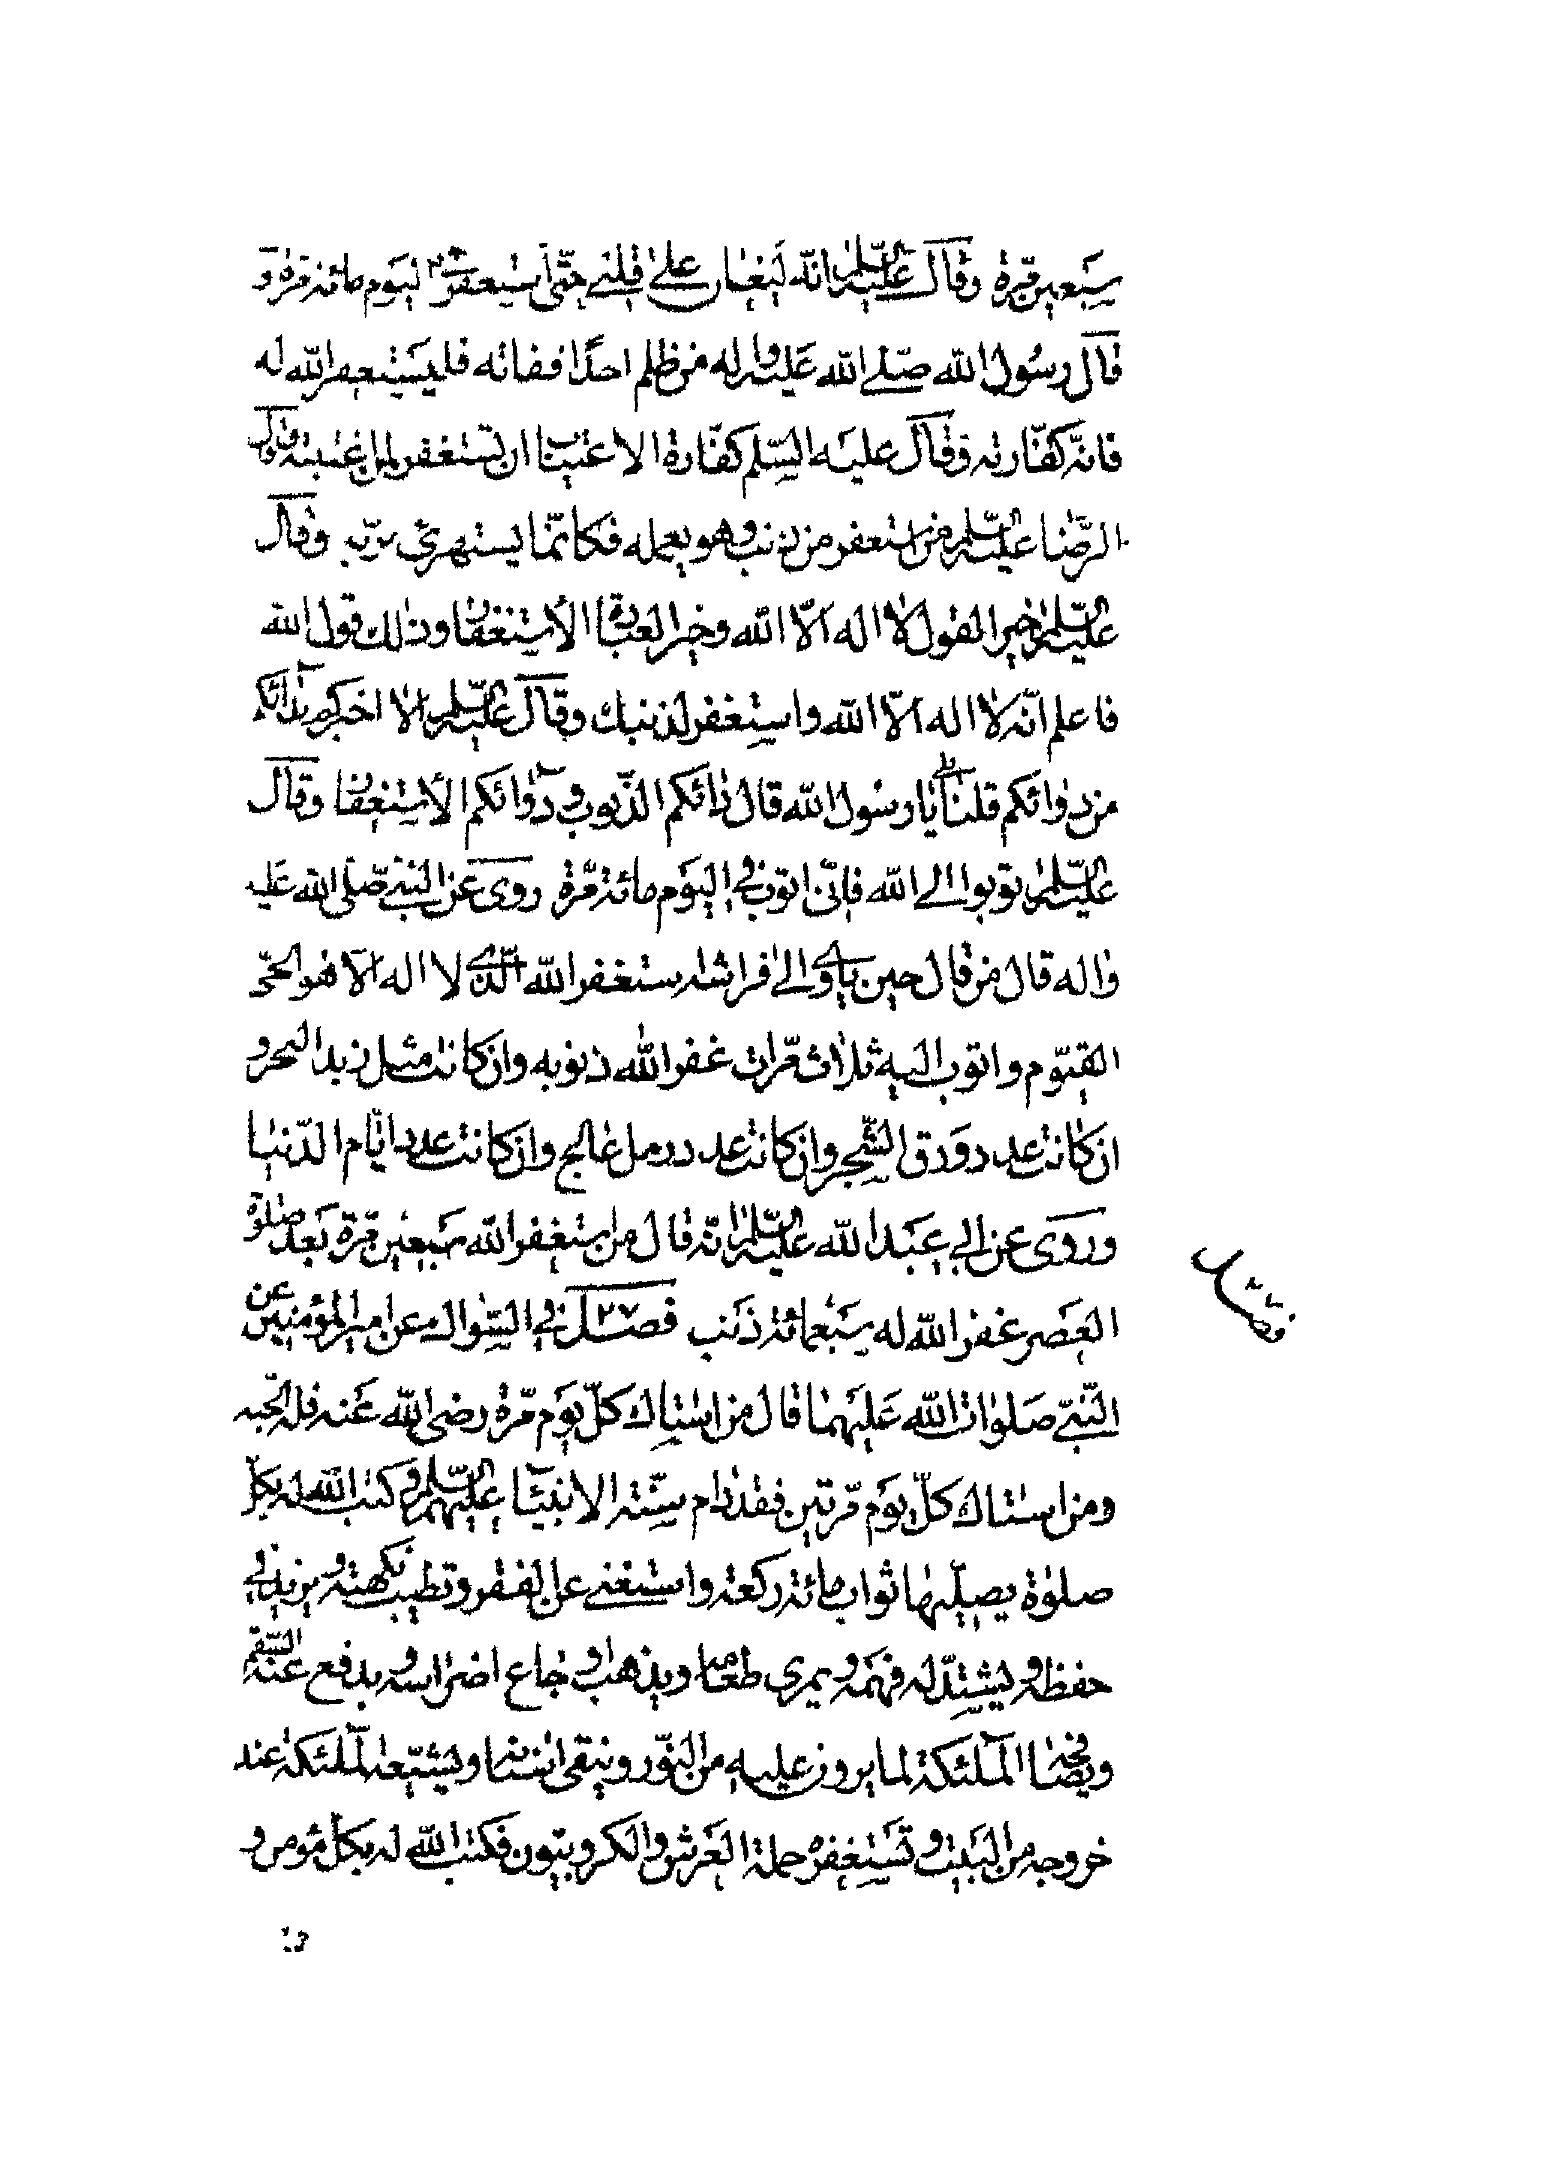 سبعين مرة وقال عليه السلم انه ليغان على قلبى حتى استغفر فى اليوم مائة مرة و
قال رسول الله صلى الله عليه واله من ظلم احدا ففاته فليستغفر الله له
فانه كفارته وقال عليه السلم كفارة الاغتياب ان تستغفر لمن اغتبته وقال
الرضا عليه السلم من استغفر من ذنب وهو يعمله فكانما يستهزئ بربه وقال
عليه السلم خير القول لا اله الا الله وخير العبادة الاستغفار وذلك قول الله
فاعلم انه لا اله الا الله واستغفر لذنبك وقال عليه السلم الا اخبركم بدائكم
من دوائكم قلنا يا رسول الله قال دائكم الذنوب ودوائكم الاستغفار وقال
عليه السلم توبوا الى الله فانى اتوب فى اليوم مائة مرة روى عن النبى صلى الله عليه
واله قال من قال حين ياوى الى فراشه ستغفر الله الذى لا اله الا هو الحى
القيوم واتوب اليه ثلاث مرات غفر الله ذنوبه وان كانت مثل زبد البحر و
ان كانت عدد ورق الشجر وان كانت عدد رمل عالج وان كانت عدد ايام الدنيا
وروى عن ابى عبد الله عليه السلم انه قال من استغفر الله سبعين مرة بعد صلوة
العصر غفر الله له سبعمائة ذنب فصل ٢٧ فى السواك عن امير المؤمنين عن
النبى صلوات الله عليهما قال من استاك كل يوم مرة رضى الله عنه فله الجنه
ومن استاك كل يوم مرتين فقد دام سنة الانبيا عليهم السلم وكتب الله له بكل
صلوة يصليها ثواب مائة ركعة واستغنى عن الفقر وتطيب نكهته ويزيد فى
حفظه ويشتد له فهمه ويمرى طعامه ويذهب اوجاع اضراسه ويدفع عنه السقم
ويصافحه الملئكة لما يرون عليه من النور وينقى اسنانه ويشيعه الملئكة عند
خروجه من البيت وتستغفره حملة العرش والكروبيون فكتب الله له بكل مؤمن و
فصل